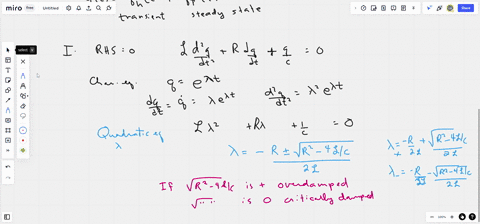 miro
Untitled
Share
transient steady state
I. RHS = 0 ℒ d²q/dt² + R dq/dt + q/c = 0
Char. eq. q = e^λt
dq/dt = q̇ = λe^λt d²q/dt² = λ²e^λt
Quadratic eq ℒλ² + Rλ + 1/c = 0
λ
λ = -R ± √(R²-4ℒ/c) / 2ℒ
λ₊ = -R/2ℒ + √(R²-4ℒ/c)/2ℒ
λ₋ = -R/2ℒ - √(R²-4ℒ/c)/2ℒ
If √(R²-4ℒ/c) is + overdamped
√.. .. is 0 critically damped